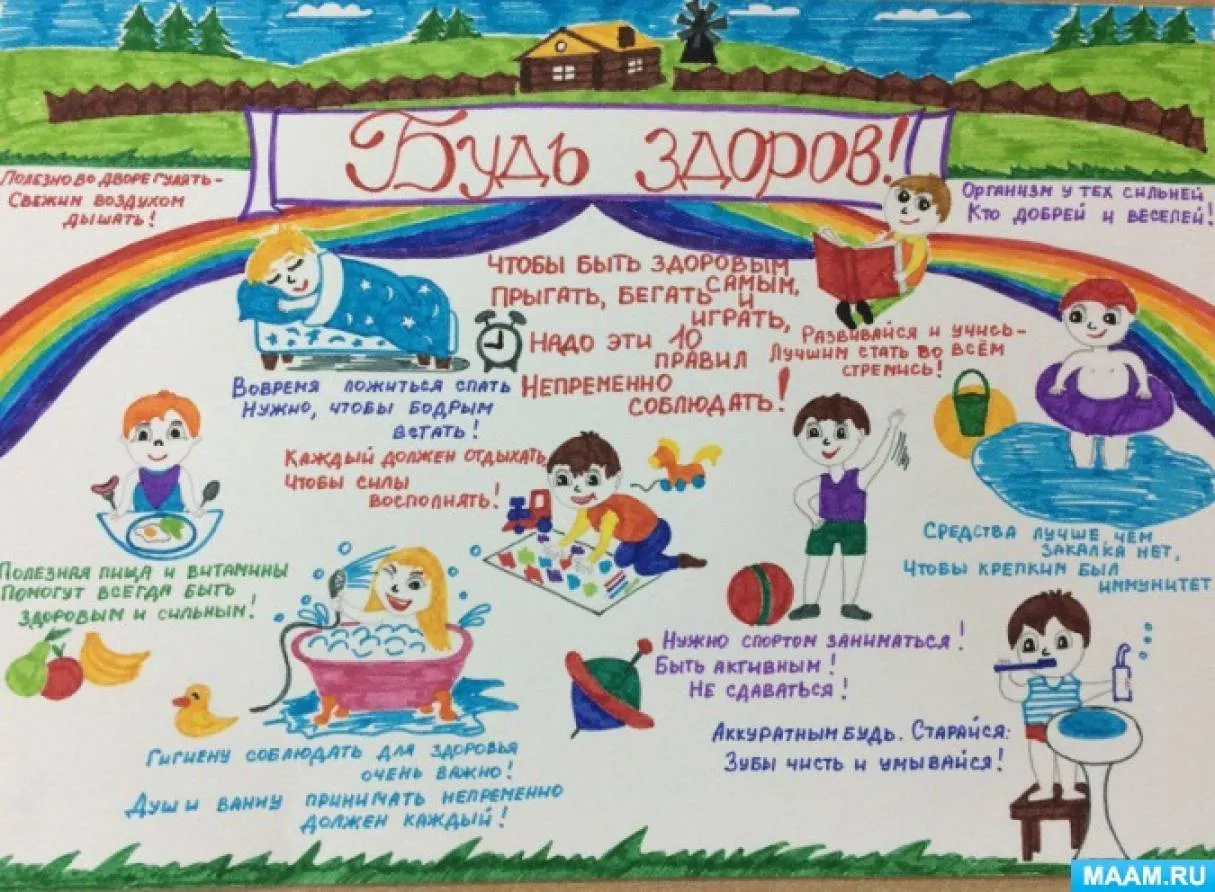 Будь здоров!
Полезно во дворе гулять -
Свежим воздухом
дышать!
Организм у тех сильней
Кто добрей и веселей!
Чтобы быть здоровым
самым,
Прыгать, бегать и
играть,
Надо эти 10
правил
Непременно
соблюдать!
Развивайся и учись-
Лучшим стать во всём
стремись!
Вовремя ложиться спать
Нужно, чтобы бодрым
встать!
Каждый должен отдыхать,
Чтобы силы
восполнять!
Средства лучше, чем
закалка нет,
Чтобы крепким был
иммунитет
Полезная пища и витамины
Помогут всегда быть
здоровым и сильным!
Нужно спортом заниматься!
Быть активным!
Не сдаваться!
Аккуратным будь. Старайся:
Зубы чисть и умывайся!
Гигиену соблюдать для здоровья
очень важно!
Душ и ванну принимать непременно
должен каждый!
MAAM.RU